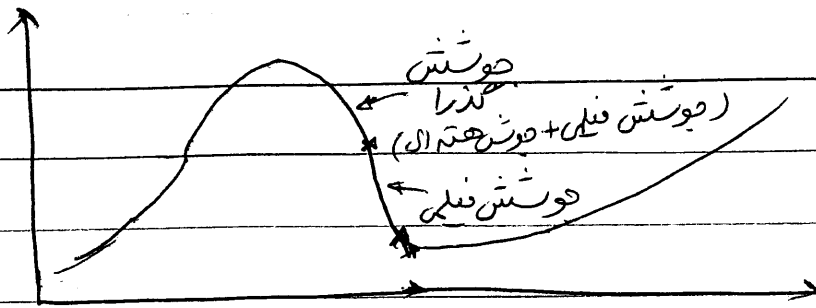 جوشش
گذرا
(جوشش فیلمی + جوشش هسته ای)
جوشش فیلمی